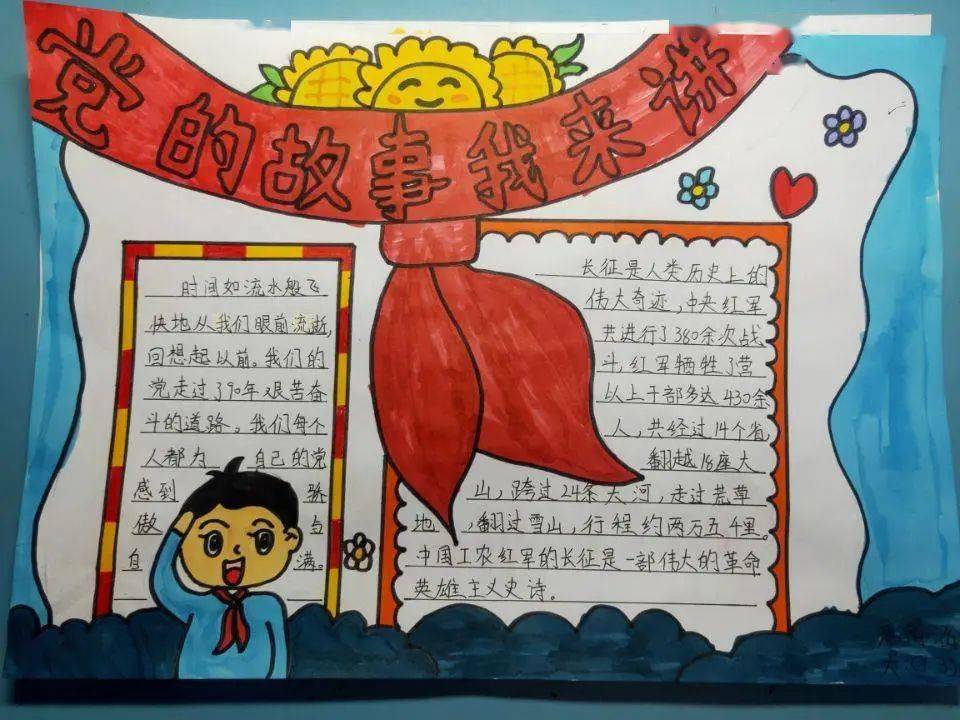 党的故事我来讲
时间如流水般飞
快地从我们眼前流逝,
回想起以前。我们的
党走过了90年艰苦奋
斗的道路。我们每个
人都为 自己的党
感到 骄
傲 与
自 满。
长征是人类历史上的
伟大奇迹,中央红军
共进行了380余次战
斗,红军牺牲了营
以上干部多达430余
人,共经过14个省,
翻越18座大
山,跨过24条大河,走过荒草
地,翻过雪山,行程约两万五千里。
中国工农红军的长征是一部伟大的革命
英雄主义史诗。